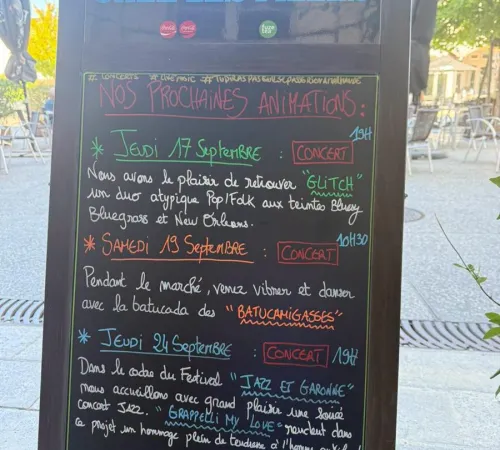 # CONCERTS # LIVE MUSIC
NOS PROCHAINES ANIMATIONS :
* JEUDI 17 Septembre : CONCERT 19H
Nous avons le plaisir de retrouver "GLITCH"
un duo atypique Pop/Folk aux teintes Bluesy
Bluegrass et New Orleans.
* SAMEDI 19 Septembre : CONCERT 10H30
Pendant le marché, venez vibrer et danser
avec la batucada des "BATUCAMIGASSES"
* JEUDI 24 Septembre : CONCERT 19H
Dans le cadre du Festival "JAZZ ET GARONNE"
nous accueillons avec grand plaisir une soirée
concert Jazz. "GRAPPELLI MY LOVE" dans
ce projet un hommage plein de tendresse à l'homme